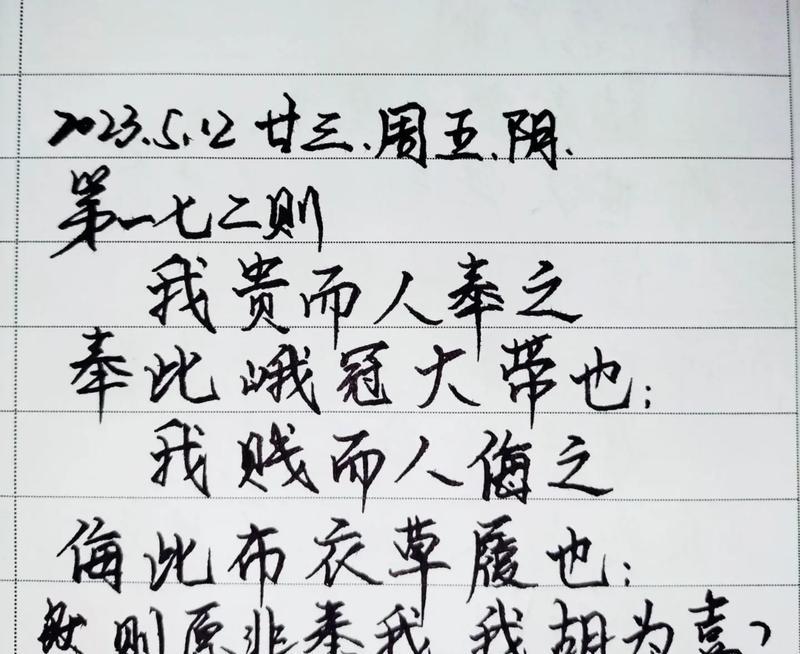 2023.5.12 廿三.周五.阴.
第一七二则
我贵而人奉之
奉此峨冠大带也;
我贱而人侮之
侮此布衣草履也;
然则原非奉我 我胡为喜?